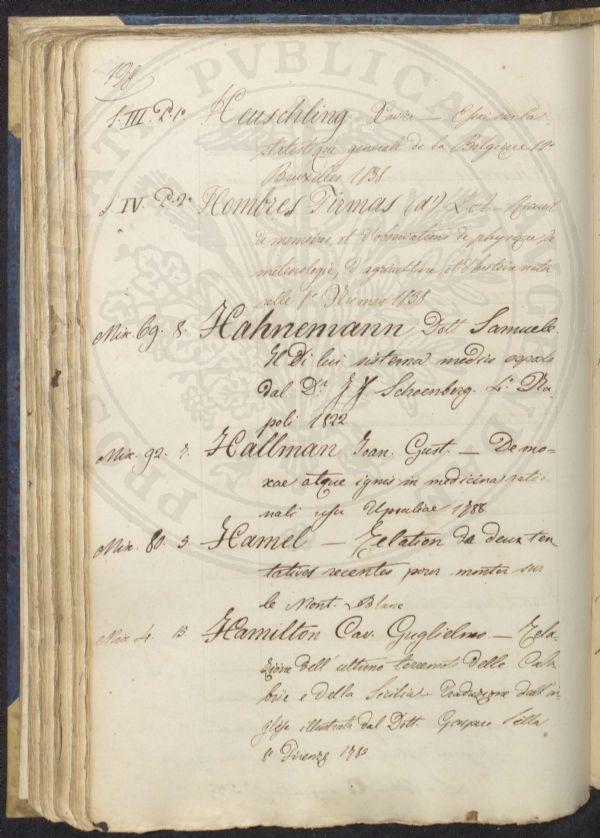 198
S. III. P. 1ᵃ Heuschling Xavier — Essai sur la
statistique generale de la Belgique
Bruxelles 1838
S. IV. P. 2ᵃ Hombres Firmas (d') L. A. — Recueil
de memoires, et d'observations de physique, de
meteorologie, d'agriculture et d'histoire natu
relle 8° Nismes 1838
Mix. 69. 8. Hahnemann Dott. Samuele.
Il di lui sistema medico esposto
dal D.r J. J. Schoenberg. 4° Na-
poli 1822
Mix. 92. 7. Hallman Joan. Gust. — De mo-
xae atque ignis in medicina ratio
nali usu Upsaliae 1788
Mix. 80. 5. Hamel — Relation de deux ten
tatives recentes pour monter sur
le Mont-Blanc
Mix. 4. 13. Hamilton Cav. Guglielmo — Rela
zione dell' ultimo terremoto delle Cala
brie e della Sicilia — Traduzione dall' in
glese illustrata dal Dott. Gaspero Sella
8° Firenze 1783
PVBLICA